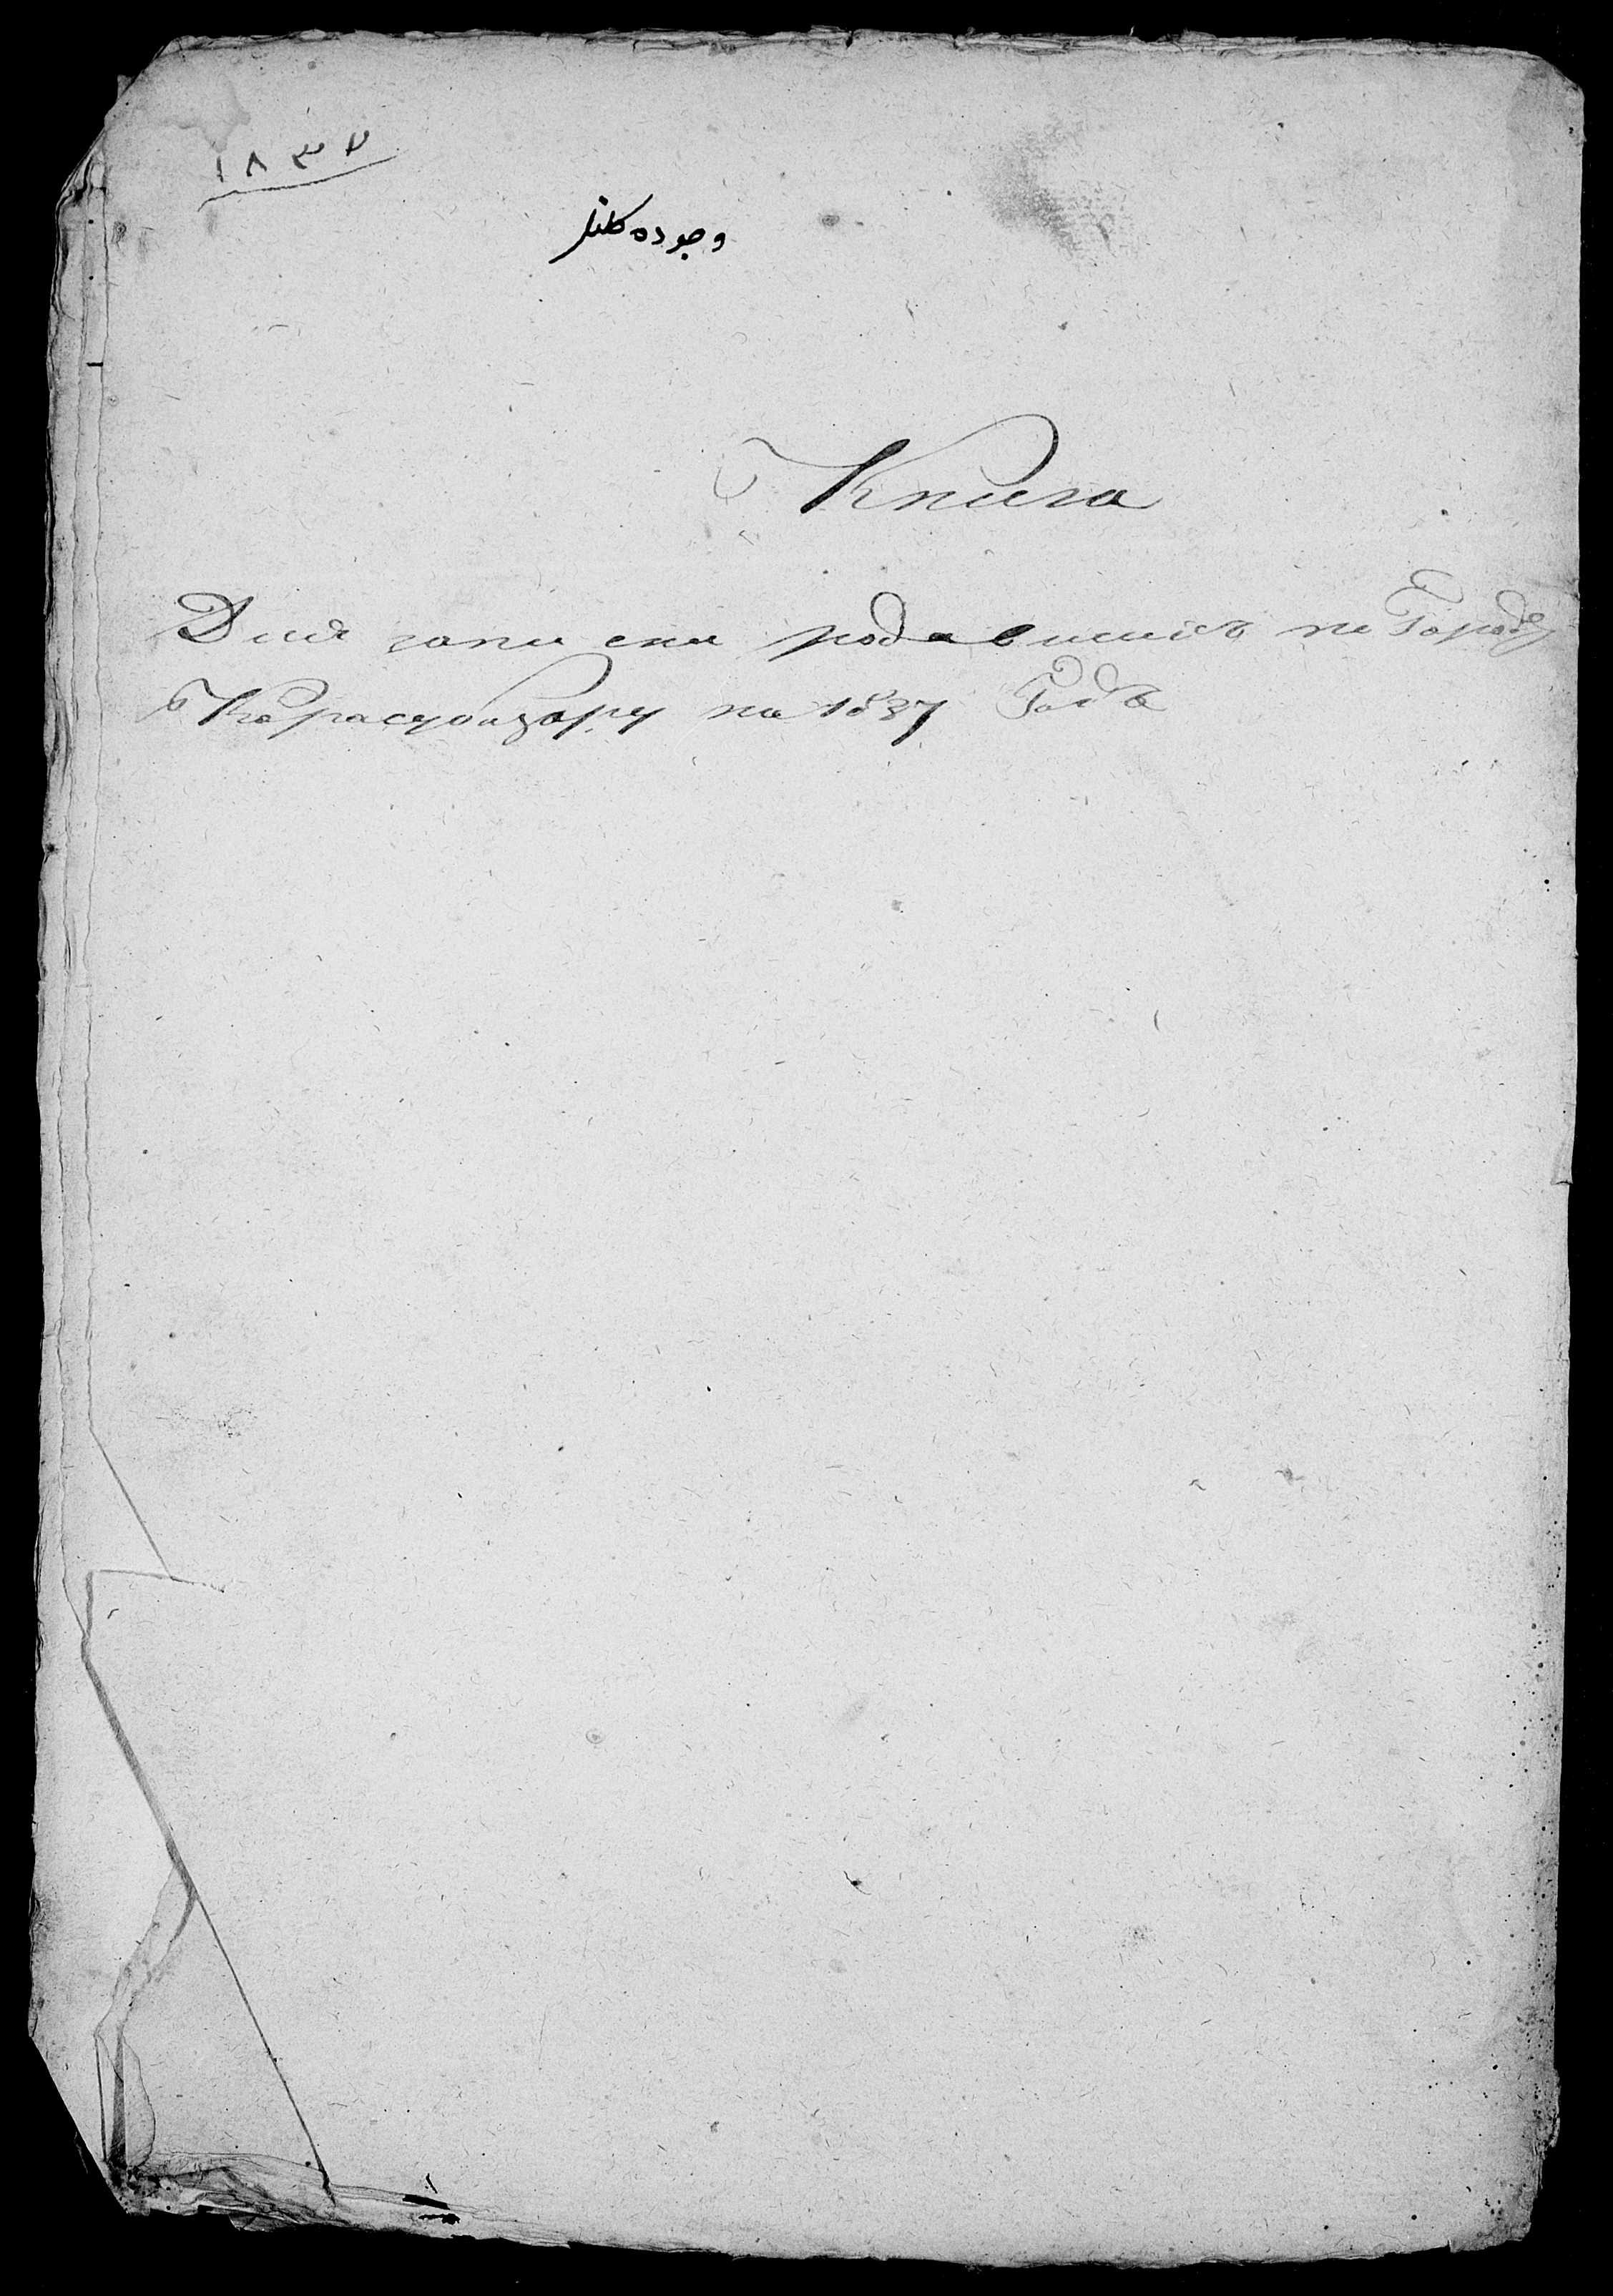 ١٨٣٧
وجوده كلنلر
Книга
Для записки родавшихъ по Городу
Карасубазару на 1837 Годъ